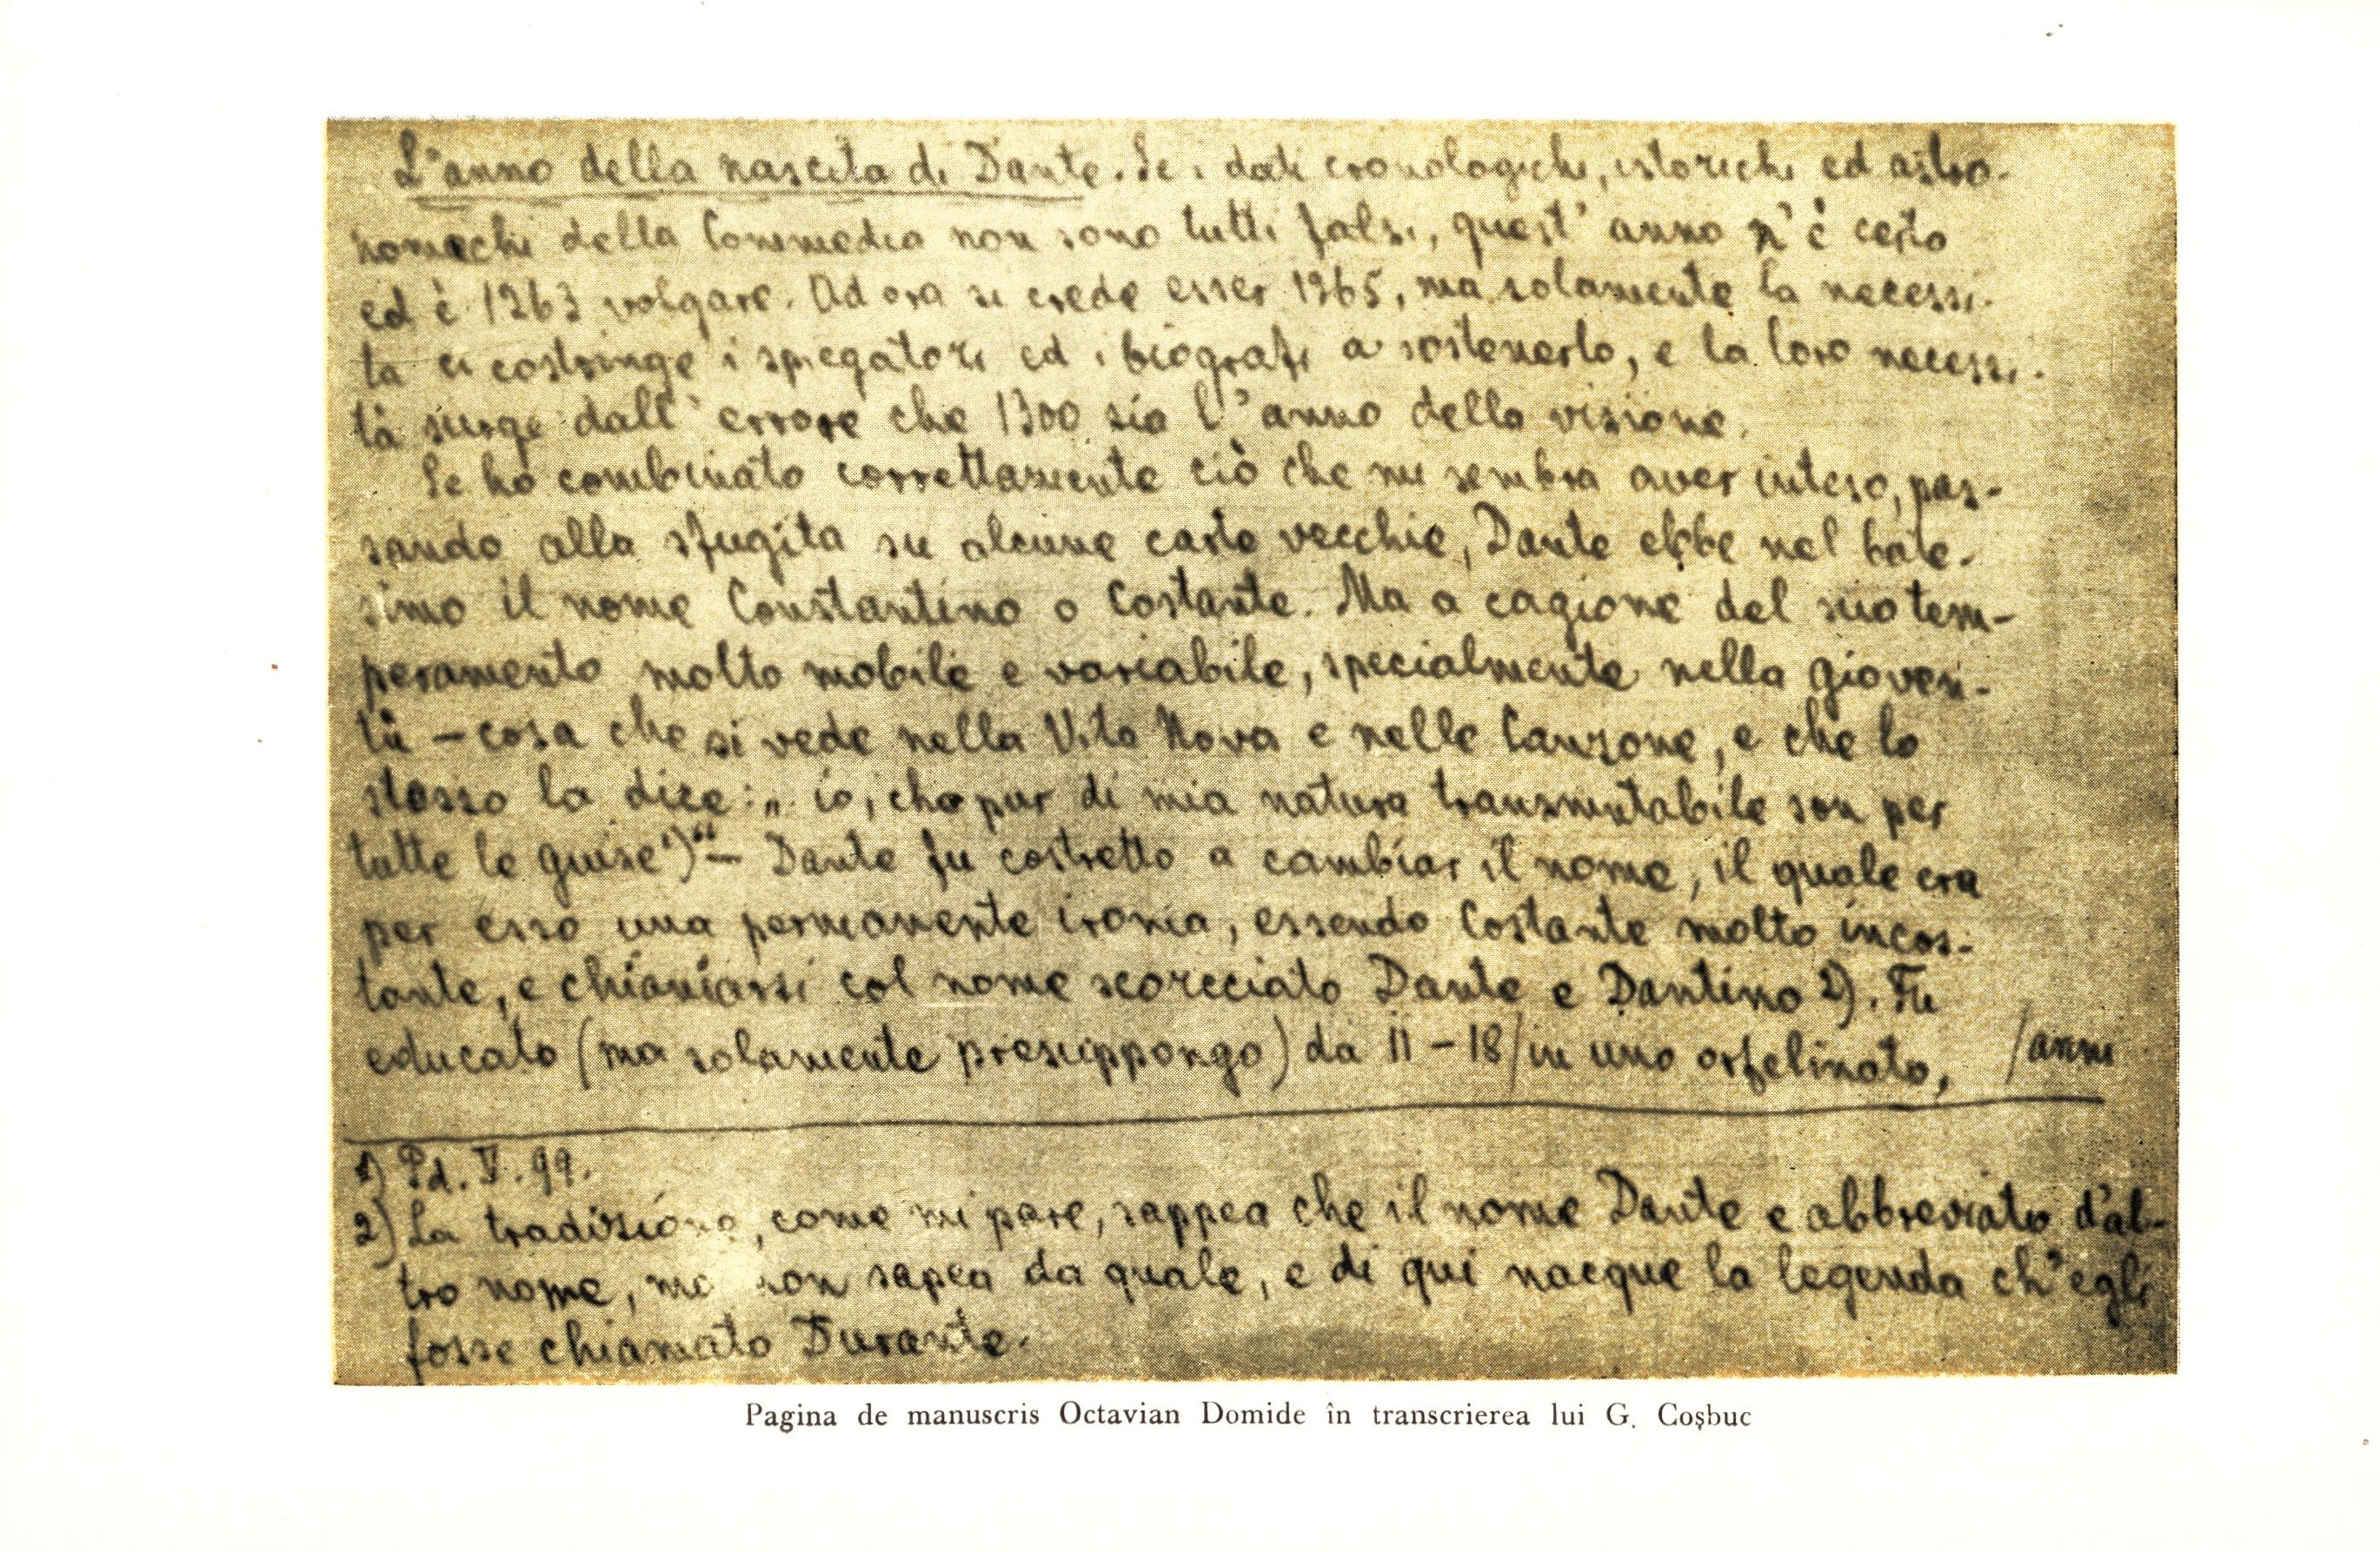 L'anno della nascita di Dante. Se i dati cronologichi, istorichi ed astro-
nomichi della Commedia non sono tutti falsi, quest' anno n'è certo
ed è 1263 volgare. Ad ora si crede esser 1265, ma solamente la necessi-
ta ci costringe i spiegatori ed i biografi a sostenerlo, e la loro necessi-
tà surge dall' errore che 1300 sia l'anno della visione.
Se ho combinato correttamente ciò che mi sembra aver inteso, pas-
sando alla sfugita su alcune carte vecchie, Dante ebbe nel bate-
simo il nome Constantino o Costante. Ma a cagione del suo tem-
peramento molto mobile e variabile, specialmente nella gioven-
tù – cosa che si vede nella Vita Nova e nelle Canzone, e che lo
stesso la dice: „ io, che pur di mia natura transmutabile son per
tutte le guise¹)“– Dante fu costretto a cambiar il nome, il quale era
per esso una permanente ironia, essendo Costante molto incos-
tante, e chiamarsi col nome scorciato Dante e Dantino 2). Fu
educato (ma solamente presuppongo) da 11 – 18/ in uno orfelinato, /anni
1) Pd. V. 99.
2) La tradizione, come mi pare, sappea che il nome Dante e abbreviato d'al-
tro nome, ma non sapea da quale, e di qui nacque la legenda ch'egli
fosse chiamato Durante.
Pagina de manuscris Octavian Domide în transcrierea lui G. Coşbuc